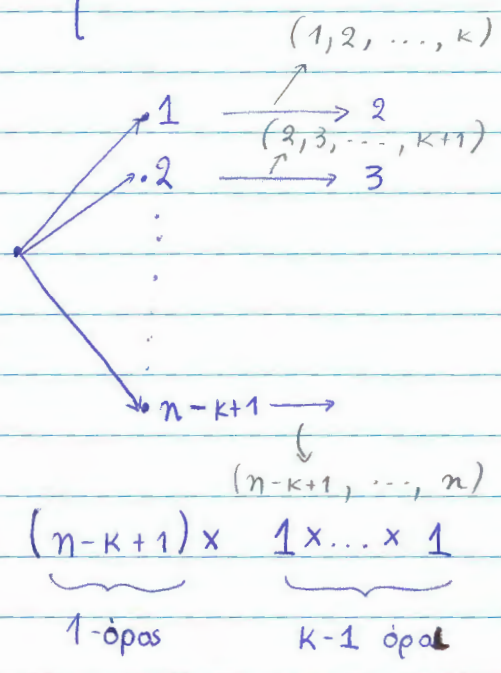 (1, 2, ..., κ)
1 → 2
(2, 3, ..., κ+1)
2 → 3
n-κ+1 →
(n-κ+1, ..., n)
(n-κ+1) × 1 × ... × 1
1-όρος κ-1 όροι